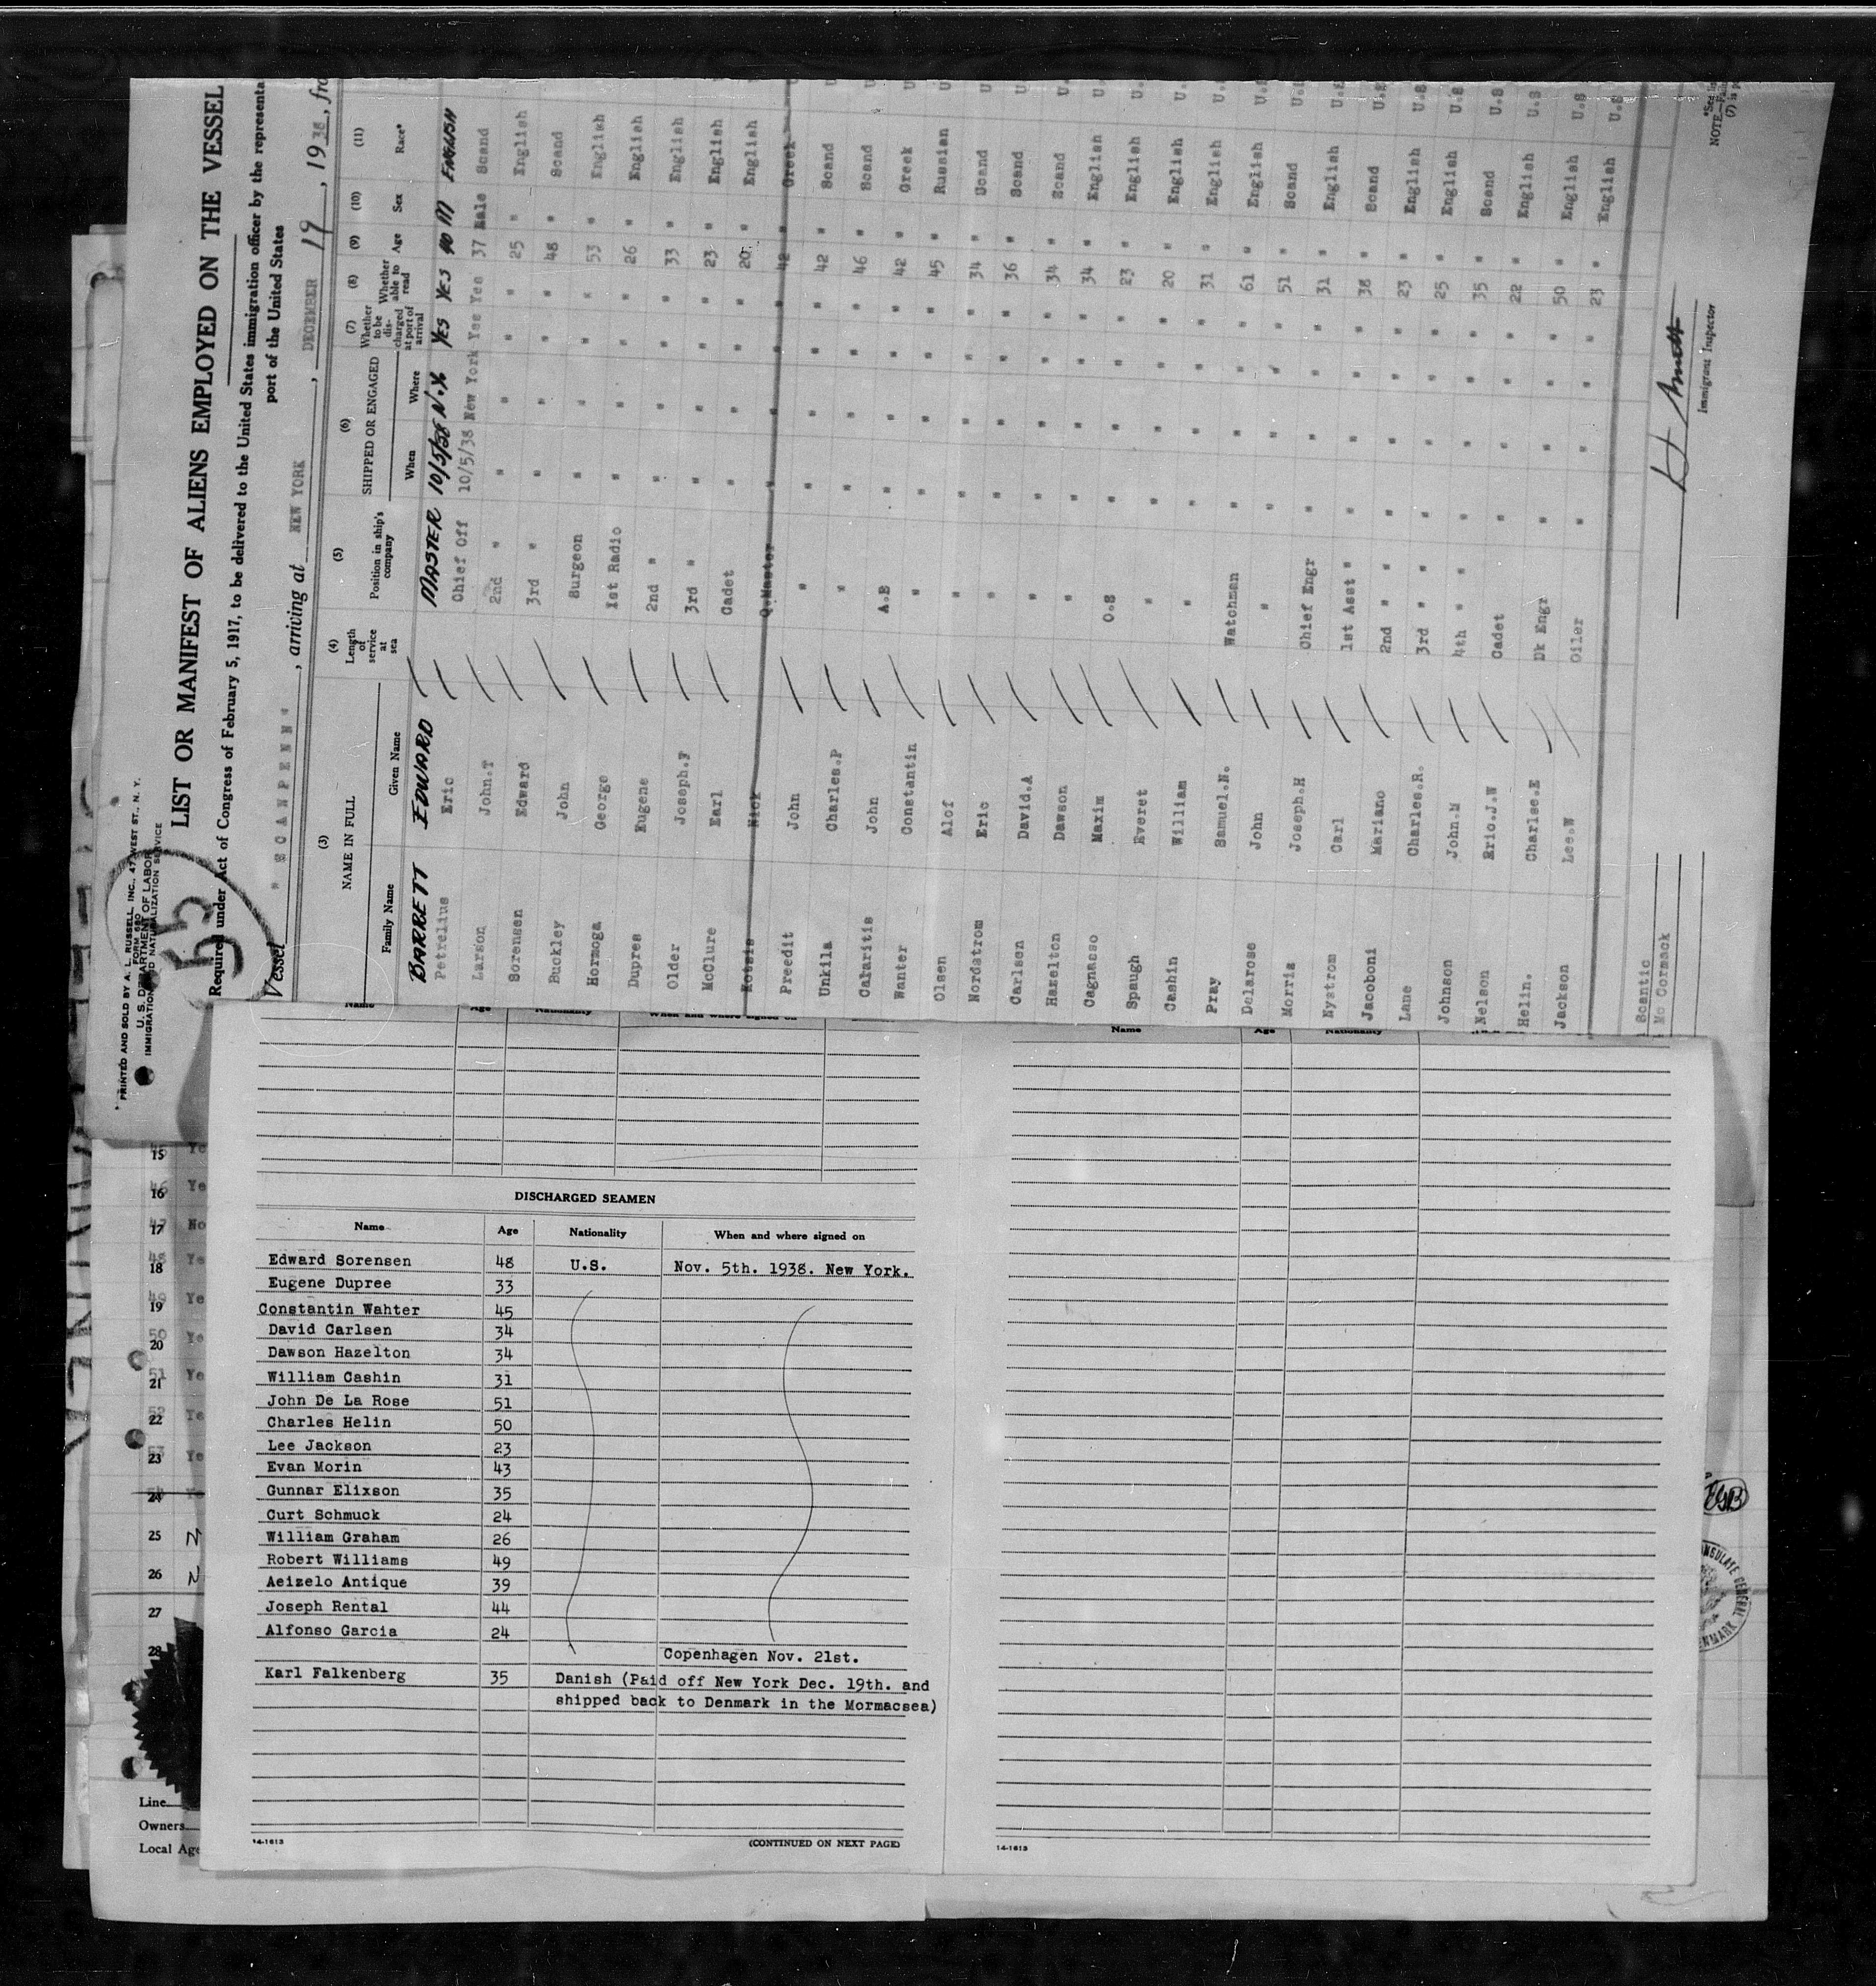 PRINTED AND SOLD BY A. L. RUSSELL, INC., 47 WEST ST., N. Y.
FORM 680
U. S. DEPARTMENT OF LABOR
IMMIGRATION AND NATURALIZATION SERVICE
55
LIST OR MANIFEST OF ALIENS EMPLOYED ON THE VESSEL
Required under Act of Congress of February 5, 1917, to be delivered to the United States immigration officer by the representa
port of the United States
Vessel "SCANPENN", arriving at NEW YORK, DECEMBER 19, 1938, fro
(3) (4) (5) (6) (7) (8) (9) (10) (11)
NAME IN FULL Length of service at sea Position in ship's company SHIPPED OR ENGAGED Whether to be discharged at port of arrival Whether able to read Age Sex Race*
Family Name Given Name When Where
BARRETT EDWARD MASTER 10/5/38 N.Y. YES YES 40 M ENGLISH
Petrelius Eric Chief Off 10/5/38 New York Yes Yes 37 Male Scand
Larson John.T 2nd " " " " " 25 " English U
Sorensen Edward 3rd " " " " " 48 " Scand
Buckley John Surgeon " " " " 53 " English
Hormoga George 1st Radio " " " " 26 " English
Dupree Eugene 2nd " " " " " 33 " English
Older Joseph.F 3rd " " " " " 23 " English
McClure Earl Cadet " " " " 20 " English
Kotsis Nick Q.Master " " " " 42 " Greek
Preedit John " " " " " 42 " Scand U
Unkila Charles.P " " " " " 46 " Scand U
Cataritis John A.B " " " " 42 " Greek U
Wanter Constantin " " " " " 45 " Russian U
Olsen Alof " " " " " 34 " Scand U
Nordstrom Eric " " " " " 36 " Scand U
Carlsen David.A " " " " " 34 " Scand U.
Hazelton Dawson " " " " " 34 " English U.
Cagnasso Maxim O.S " " " " 23 " English U.
Spaugh Everet " " " " " 20 " English U.
Cashin William " " " " " 31 " English U.
Pray Samuel.N. Watchman " " " " 61 " English U.S
Delarose John " " " " " 51 " Scand U.S
Morris Joseph.H Chief Engr " " " " 31 " English U.S
Nystrom Carl 1st Asst " " " " " 38 " Scand U.S
Jacoboni Mariano 2nd " " " " " " 23 " English U.S
Lane Charles.R. 3rd " " " " " " 25 " English U.S
Johnson John.M 4th " " " " " " 35 " Scand U.S
Nelson Eric.J.W Cadet " " " " 22 " English U.S
Helin. Charles.E Dk Engr " " " " 50 " English U.S
Jackson Lee.W Oiler " " " " 23 " English U.S
Scantic
Mc Cormack
Immigrant Inspector
*See lis
NOTE—Fail
(7) is p
Name Age Nationality When and where signed on
Name Age Nationality
DISCHARGED SEAMEN
Name Age Nationality When and where signed on
Edward Sorensen 48 U.S. Nov. 5th. 1938. New York.
Eugene Dupree 33
Constantin Wahter 45
David Carlsen 34
Dawson Hazelton 34
William Cashin 31
John De La Rose 51
Charles Helin 50
Lee Jackson 23
Evan Morin 43
Gunnar Elixson 35
Curt Schmuck 24
William Graham 26
Robert Williams 49
Aeizelo Antique 39
Joseph Rental 44
Alfonso Garcia 24
Copenhagen Nov. 21st.
Karl Falkenberg 35 Danish (Paid off New York Dec. 19th. and
shipped back to Denmark in the Mormacsea)
14-1613 (CONTINUED ON NEXT PAGE)
14-1613
15 Ye
16 Ye
17 No
18 Ye
19 Ye
20 Ye
21 Ye
22 Ye
23 Ye
24 Ye
25 N
26 N
27
28
Line
Owners
Local Age